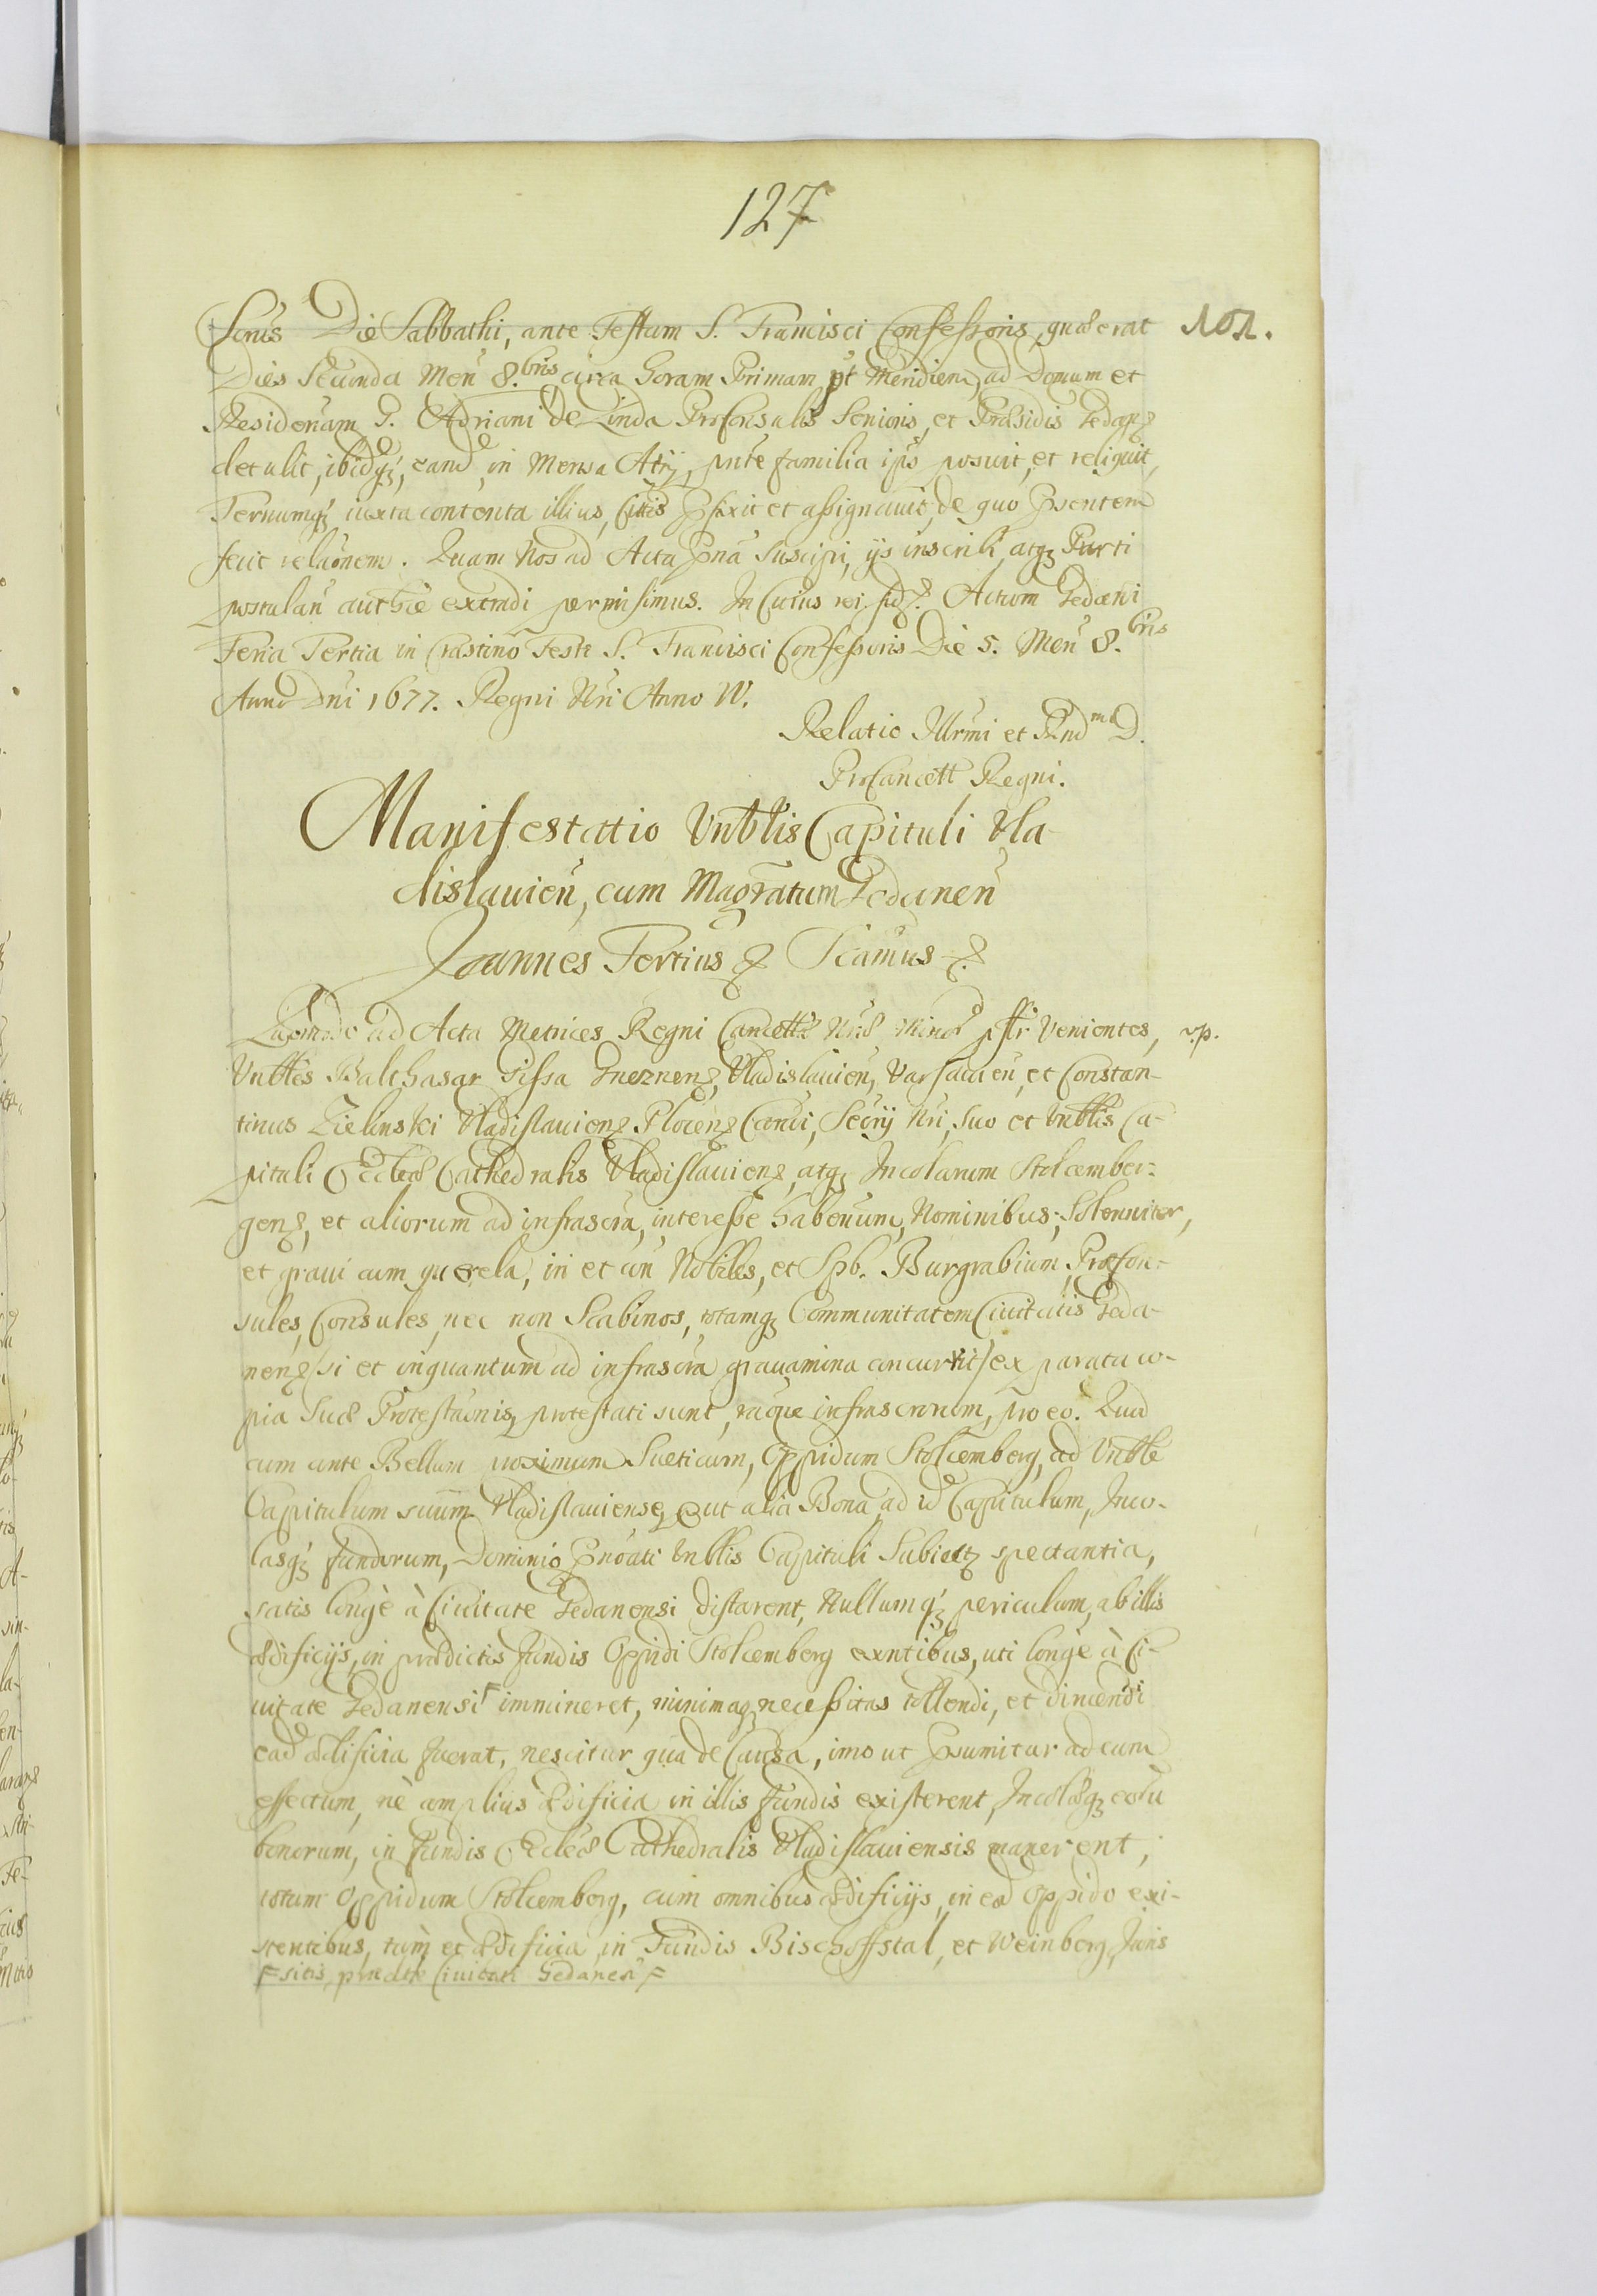 127
101.
Scnis Die Sabbathi, ante Festum S. Francisci Confessoris, quæ erat
Dies Secunda Men 8.bris circa Horam Primam pt Meridiem, ad Domum et
Residenam G. Adriani de Linda ProConsulis Senioris, et Præsidis Gedanen
detulit, ibidqz, eand, in Mensa Atrij, pnte familia ips posuit, et reliquit,
Termumqz iuxta contenta illius, Cittis præfixit et assignauit, de quo præsentem
fecit relaonem. Quam Nos ad Acta pnã suscipi, ijs inscribi, atqz Parti
postulan auth̃ce extradi permisimus. In Cuius rei fid. Actum Gedani
Feria Tertia in Crastino Festi S. Francisci Confessoris Die 5. Men 8.bris
Anno Dni 1677. Regni Nri Anno IV.
Relatio Illrmi et Rndmi D.
ProCancell Regni.
Manifestatio Vnblis Capituli Vla-
dislauien, cum Magratum Gedanen
Joannes Tertius Scamus
ad Acta Metrices Regni Cancell Nræ Minor pslr Venientes, v.p.
Vnbles Balthasar Gneznen, Vladislauien, Varsauien, et Constan-
tinus Zielinski Vladislauien Plocen Canci, Secrij Nri, suo et Vnblis Ca-
pituli Ecclæ Cathedralis Vladislauien, atqz Incolarum Stolcember-
gen, et aliorum ad infrascra, interesse habenum, Nominibus; Solenniter,
et graui cum querela, in et con Nobiles, et Spb. Burgrabium, Procon-
sules, Consules, nec non Scabinos, totamqz Communitatem Ciuitatis Geda-
nen si et inquantum ad infrascra grauamina concurrit ex parata co-
pia suæ Protestaonis, protestati sunt, raque infrascronem, pro eo. Quod
cum ante Bellum proximum Sueticum, Oppidum Stolcemberg, ad Vnble
Capitulum suum Vladislauiense, put alia Bona ad id Capitulum, Inco-
lasqz fundorum, Dominio pnoati Vnblis Capituli Subiect, spectantia,
satis longè à Ciuitate Gedanensi distarent, Nullumqz periculum, ab illis
ædificijs, in prædictis fundis Oppidi Stolcemberg exntibus, uti longè à Ci-
uitate Gedanensi immineret, minimaqz necessitas tollendi, et dincendi
ead ædificia fuerat, nescitur qua de Causa, imo ut præsumitur ad eum
effectum, nè amplius ædificia in illis fundis existerent, Incolæqz eolu
bonorum, in fundis Ecclæ Cathedralis Vladislauiensis manerent,
totum Oppidum Stolcemberg, cum omnibus ædificijs, in eod Oppido exi-
stentibus, tum et ædificia in Fundis Bischoffstal, et Weinberg, Juris
F sitis, prædictæ Ciuitati Gedanen F